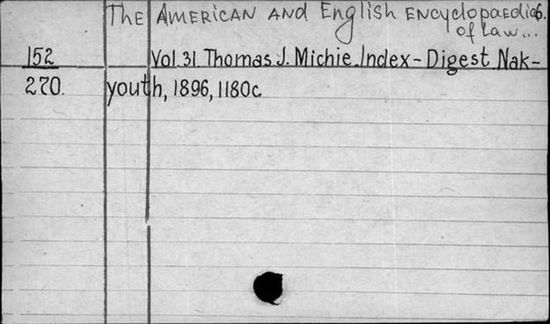 The American and English Encyclopaedia
of law...
152 Vol. 31. Thomas J. Michie. Index-Digest Nak-
270. youth, 1896, 1180c